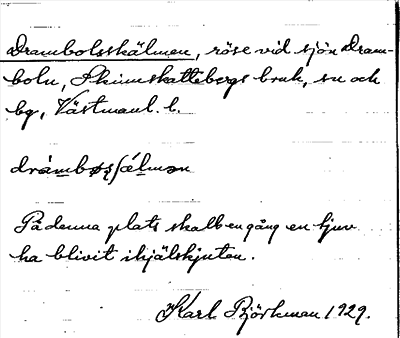 Drambolsskälmen, röse vid sjön Dram-
boln, Skinnskattebergs bruk, sn och
bg, Västmanl. l.
drámbøsʃǽlmən
På denna plats skall en gång en tjuv
ha blivit ihjälskjuten.
Karl Björkman 1929.